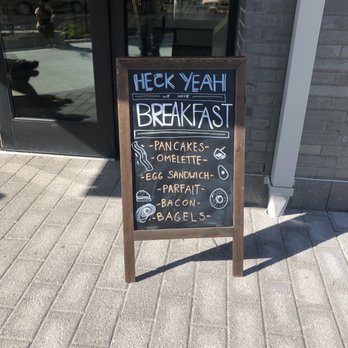 HECK YEAH
WE HAVE
BREAKFAST
-PANCAKES-
-OMELETTE-
-EGG SANDWICH-
-PARFAIT-
-BACON-
-BAGELS-